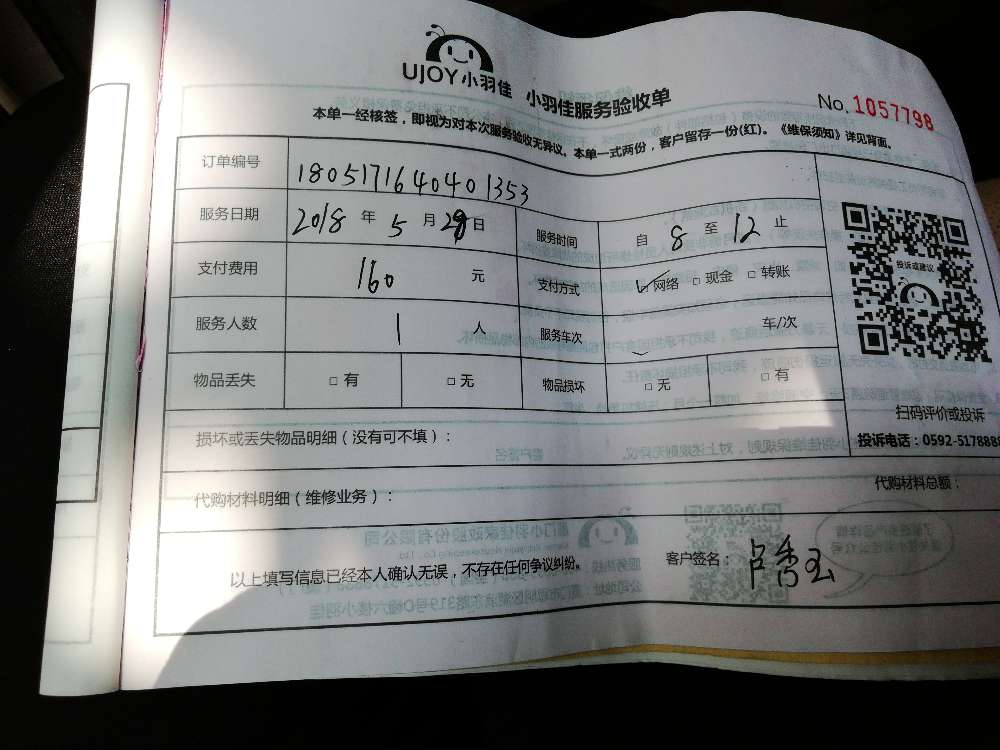 UJOY小羽佳 小羽佳服务验收单
No. 1057798
本单一经核签，即视为对本次服务验收无异议。本单一式两份，客户留存一份(红)。《维保须知》详见背面。
订单编号 1805171640401353
服务日期 2018 年 5 月 29 日 服务时间 自 8 至 12 止
投诉或建议
支付费用 160 元 支付方式 ☑网络 □现金 □转账
服务人数 1 人 服务车次 车/次
物品丢失 □有 □无 物品损坏 □无 □有
扫码评价或投诉
投诉电话：0592-5178888
损坏或丢失物品明细（没有可不填）：
代购材料明细（维修业务）： 代购材料总额：
以上填写信息已经本人确认无误，不存在任何争议纠纷。 客户签名： 卢秀玉